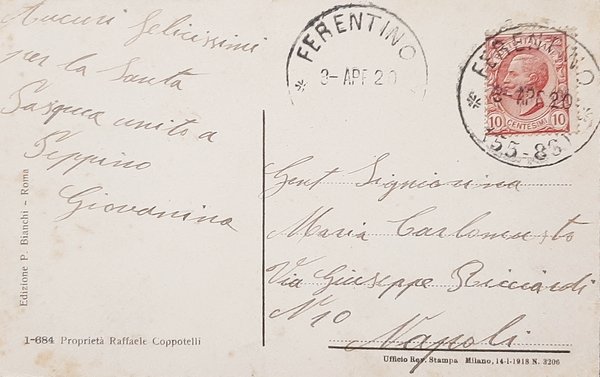 Auguri felicissimi
per la Santa
Pasqua unito a
Peppino
Giovanina
Edizione P. Bianchi - Roma
1-684 Proprietà Raffaele Coppotelli
FERENTINO
3-APR 20
FERENTINO
3-APR 20
(55-86)
10 CENTESIMI 10
Gent Signiorina
Maria
Via Giuseppe Ricciardi
N 10
Napoli
Ufficio Rev. Stampa Milano, 14-1-1918 N. 3206